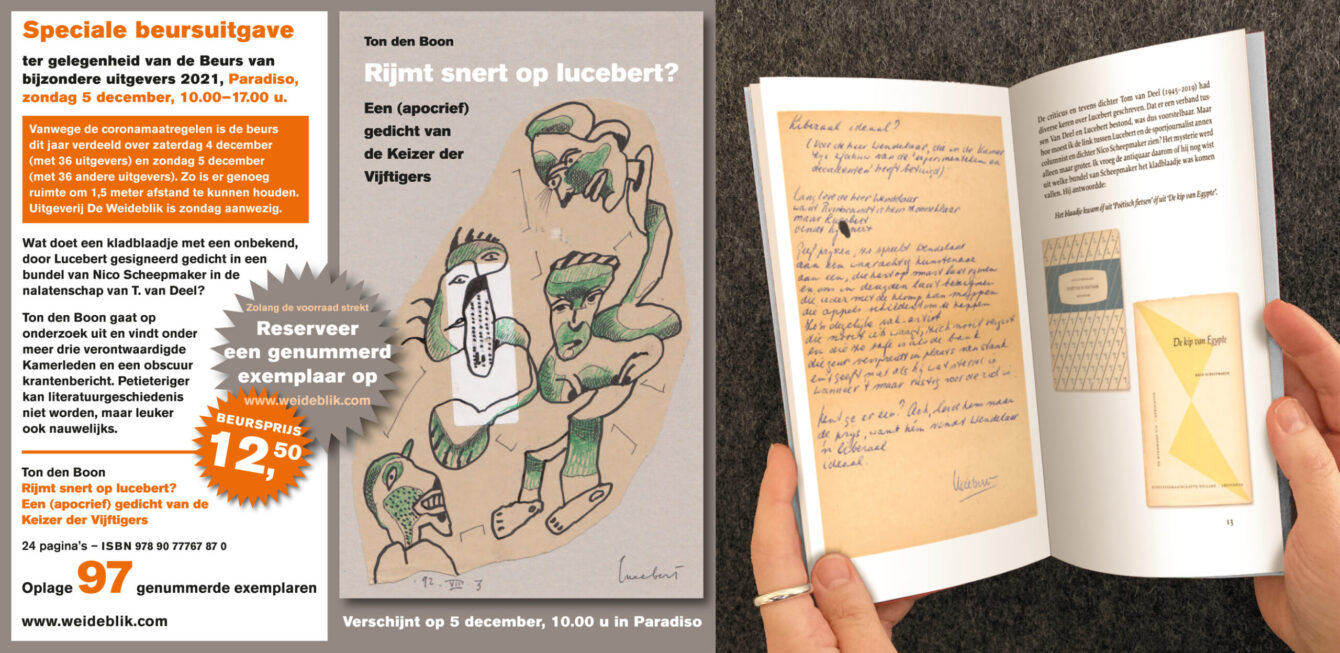 Speciale beursuitgave
ter gelegenheid van de Beurs van
bijzondere uitgevers 2021, Paradiso,
zondag 5 december, 10.00–17.00 u.
Vanwege de coronamaatregelen is de beurs
dit jaar verdeeld over zaterdag 4 december
(met 36 uitgevers) en zondag 5 december
(met 36 andere uitgevers). Zo is er genoeg
ruimte om 1,5 meter afstand te kunnen houden.
Uitgeverij De Weideblik is zondag aanwezig.
Wat doet een kladblaadje met een onbekend,
door Lucebert gesigneerd gedicht in een
bundel van Nico Scheepmaker in de
nalatenschap van T. van Deel?
Ton den Boon gaat op
onderzoek uit en vindt onder
meer drie verontwaardigde
Kamerleden en een obscuur
krantenbericht. Petieteriger
kan literatuurgeschiedenis
niet worden, maar leuker
ook nauwelijks.
Zolang de voorraad strekt
Reserveer
een genummerd
exemplaar op
www.weideblik.com
BEURSPRIJS
12,50
Ton den Boon
Rijmt snert op lucebert?
Een (apocrief) gedicht van de
Keizer der Vijftigers
24 pagina's – ISBN 978 90 77767 87 0
Oplage 97 genummerde exemplaren
www.weideblik.com
Ton den Boon
Rijmt snert op lucebert?
Een (apocrief)
gedicht van
de Keizer der
Vijftigers
'92. VIII 3
Lucebert
Verschijnt op 5 december, 10.00 u in Paradiso
Liberaal ideaal?
(Voor de heer Wendelaar, die in de Kamer
zijn afschuw van de "experimentelen en
decadenten" heeft betuigd)
Lang leve de heer Wendelaar
want Rembrandt is hem zonneklaar
maar Lucebert
vindt hij snert
Geef prijzen, zo spreekt Wendelaar
aan een waarachtig kunstenaar
aan een, die hart op smart laat rijmen
en ons in deugden laat bezwijmen
die ieder met de klomp kan snappen
die appels schildert om te happen
die nooit iets waagt, zich nooit vergist
en die zo safe is als de bank
die geur verspreidt in plaats van stank
Kent ge er een? Ach, leid hem naar
de prijs, want hém vindt Wendelaar
'n liberaal
ideaal.
Lucebert
De criticus en tevens dichter Tom van Deel (1945-2019) had
diverse keren over Lucebert geschreven. Dat er een verband tus-
sen Van Deel en Lucebert bestond, was dus voorstelbaar. Maar
hoe moest ik de link tussen Lucebert en de sportjournalist annex
columnist en dichter Nico Scheepmaker zien? Het mysterie werd
alleen maar groter. Ik vroeg de antiquaar daarom of hij nog wist
uit welke bundel van Scheepmaker het kladblaadje was komen
vallen. Hij antwoordde:
Het blaadje kwam óf uit 'Poëtisch fietsen' óf uit 'De kip van Egypte'.
De kip van Egypte
NICO SCHEEPMAKER
13